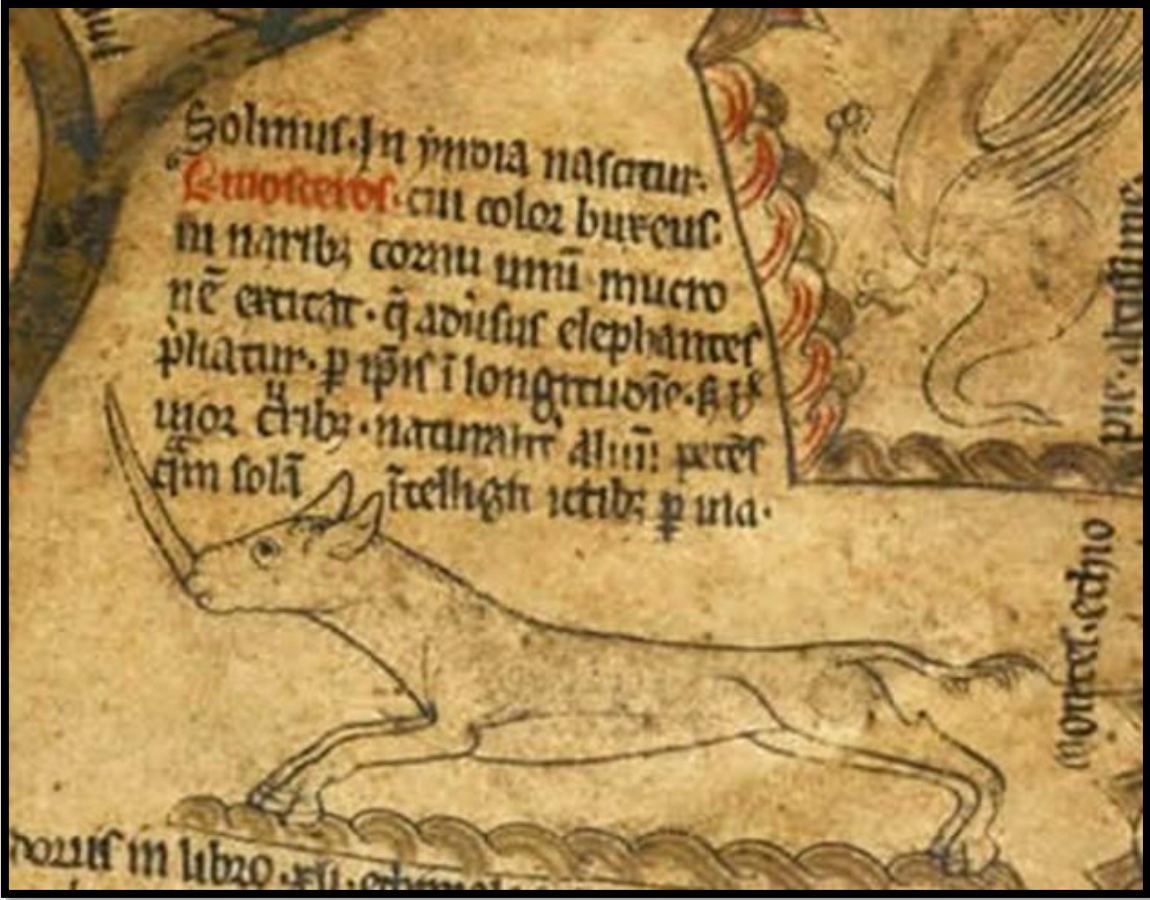 Solinus. In yndia nascitur.
Rinosceros. cui color buxeus.
in narib; cornu unū mucro
nē excitat. q̄ aduersus elephantes
p̄liatur. p ip̄is ī longitudīe.
cribꝫ. naturalit Aluū petēs
qm solā ītelligit ictibꝫ p uia.
dorus in libro. xii.
Montes. ethio
pie. altissime.